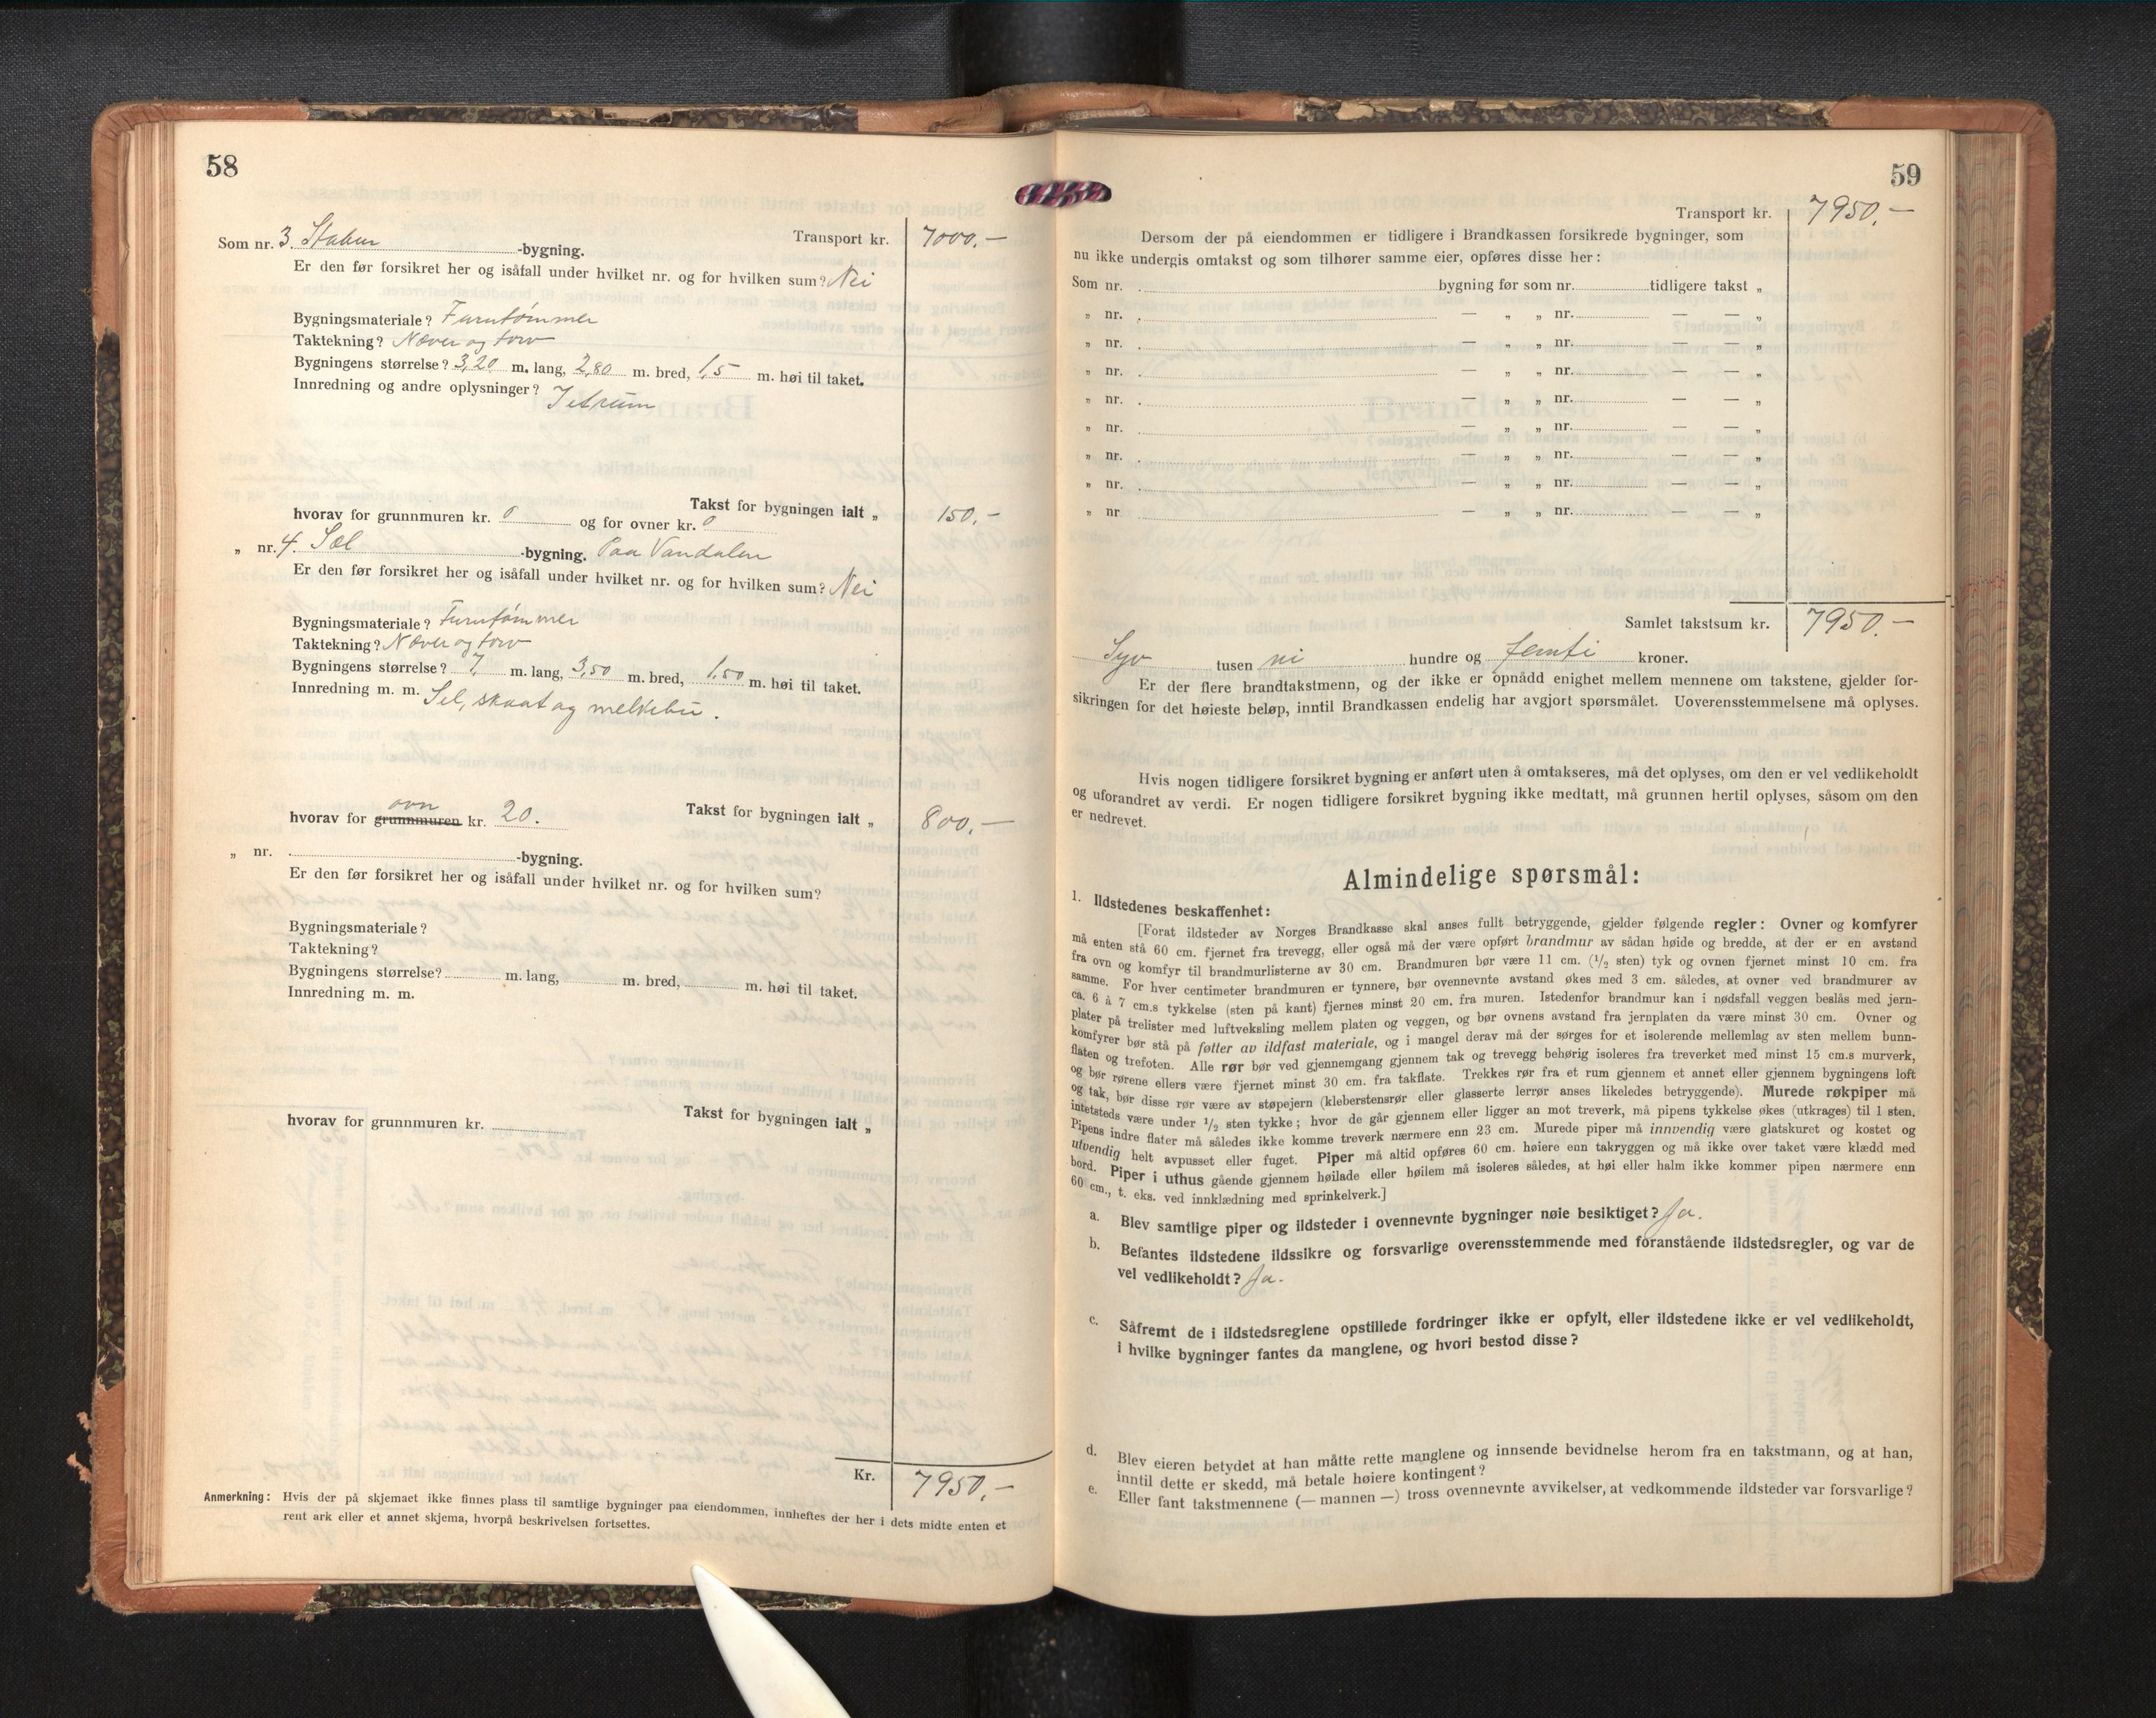 58
Som nr. 3. Stabur -bygning. Transport kr. 7000,—
Er den før forsikret her og isåfall under hvilket nr. og for hvilken sum? Nei
Bygningsmateriale? Furutømmer
Taktekning? Næver og torv
Bygningens størrelse? 3,20 m. lang, 2,80 m. bred, 1,5 m. høi til taket.
Innredning og andre oplysninger? 1 etrum
hvorav for grunnmuren kr. 0 og for ovner kr. 0 Takst for bygningen ialt „ 150,-
„ nr. 4. Sel -bygning. Paa Vandalen
Er den før forsikret her og isåfall under hvilket nr. og for hvilken sum? Nei
Bygningsmateriale? Furutømmer
Taktekning? Næver og torv
Bygningens størrelse? 7, m. lang, 3,50 m. bred, 1,50 m. høi til taket.
Innredning m. m. Sel, skaat og melkebu.
ovn
hvorav for grunnmuren kr. 20. Takst for bygningen ialt „ 800,—
„ nr. -bygning.
Er den før forsikret her og isåfall under hvilket nr. og for hvilken sum?
Bygningsmateriale?
Taktekning?
Bygningens størrelse? m. lang, m. bred, m. høi til taket.
Innredning m. m.
hvorav for grunnmuren kr. Takst for bygningen ialt „
Kr. 7950,—
Anmerkning: Hvis der på skjemaet ikke finnes plass til samtlige bygninger paa eiendommen, innheftes der her i dets midte enten et
rent ark eller et annet skjema, hvorpå beskrivelsen fortsettes.
59
Transport kr. 7950,—
Dersom der på eiendommen er tidligere i Brandkassen forsikrede bygninger, som
nu ikke undergis omtakst og som tilhører samme eier, opføres disse her:
Som nr. bygning før som nr. tidligere takst „
„ nr. — „ „ nr. — — „
„ nr. — „ „ nr. — — „
„ nr. — „ „ nr. — — „
„ nr. — „ „ nr. — — „
„ nr. — „ „ nr. — — „
„ nr. — „ „ nr. — — „
„ nr. — „ „ nr. — — „
„ nr — „ „ nr. — — „
Samlet takstsum kr. 7950.—
Syv tusen ni hundre og femti kroner.
Er der flere brandtakstmenn, og der ikke er opnådd enighet mellem mennene om takstene, gjelder for-
sikringen for det høieste beløp, inntil Brandkassen endelig har avgjort spørsmålet. Uoverensstemmelsene må oplyses.
Hvis nogen tidligere forsikret bygning er anført uten å omtakseres, må det oplyses, om den er vel vedlikeholdt
og uforandret av verdi. Er nogen tidligere forsikret bygning ikke medtatt, må grunnen hertil oplyses, såsom om den
er nedrevet.
Almindelige spørsmål:
1. Ildstedenes beskaffenhet:
[Forat ildsteder av Norges Brandkasse skal anses fullt betryggende, gjelder følgende regler: Ovner og komfyrer
må enten stå 60 cm. fjernet fra trevegg, eller også må der være opført brandmur av sådan høide og bredde, at der er en avstand
fra ovn og komfyr til brandmurlisterne av 30 cm. Brandmuren bør være 11 cm. (1/2 sten) tyk og ovnen fjernet minst 10 cm. fra
samme. For hver centimeter brandmuren er tynnere, bør ovennevnte avstand økes med 3 cm. således, at ovner ved brandmurer av
ca. 6 à 7 cm.s tykkelse (sten på kant) fjernes minst 20 cm. fra muren. Istedenfor brandmur kan i nødsfall veggen beslås med jern-
plater på trelister med luftveksling mellem platen og veggen, og bør ovnens avstand fra jernplaten da være minst 30 cm. Ovner og
komfyrer bør stå på føtter av ildfast materiale, og i mangel derav må der sørges for et isolerende mellemlag av sten mellem bunn-
flaten og trefoten. Alle rør bør ved gjennemgang gjennem tak og trevegg behørig isoleres fra treverket med minst 15 cm.s murverk,
og bør rørene ellers være fjernet minst 30 cm. fra takflate. Trekkes rør fra et rum gjennem et annet eller gjennem bygningens loft
og tak, bør disse rør være av støpejern (kleberstensrør eller glasserte lerrør anses likeledes betryggende). Murede røkpiper må
intetsteds være under 1/2 sten tykke; hvor de går gjennem eller ligger an mot treverk, må pipens tykkelse økes (utkrages) til 1 sten.
Pipens indre flater må således ikke komme treverk nærmere enn 23 cm. Murede piper må innvendig være glatskuret og kostet og
utvendig helt avpusset eller fuget. Piper må altid opføres 60 cm. høiere enn takryggen og må ikke over taket være klædd med
bord. Piper i uthus gående gjennem høilade eller høilem må isoleres således, at høi eller halm ikke kommer pipen nærmere enn
60 cm., t. eks. ved innklædning med sprinkelverk.]
a. Blev samtlige piper og ildsteder i ovennevnte bygninger nøie besiktiget? Ja.
b. Befantes ildstedene ildssikre og forsvarlige overensstemmende med foranstående ildstedsregler, og var de
vel vedlikeholdt? Ja.
c. Såfremt de i ildstedsreglene opstillede fordringer ikke er opfylt, eller ildstedene ikke er vel vedlikeholdt,
i hvilke bygninger fantes da manglene, og hvori bestod disse?
d. Blev eieren betydet at han måtte rette manglene og innsende bevidnelse herom fra en takstmann, og at han,
inntil dette er skedd, må betale høiere kontingent?
e. Eller fant takstmennene (— mannen —) tross ovennevnte avvikelser, at vedkommende ildsteder var forsvarlige?